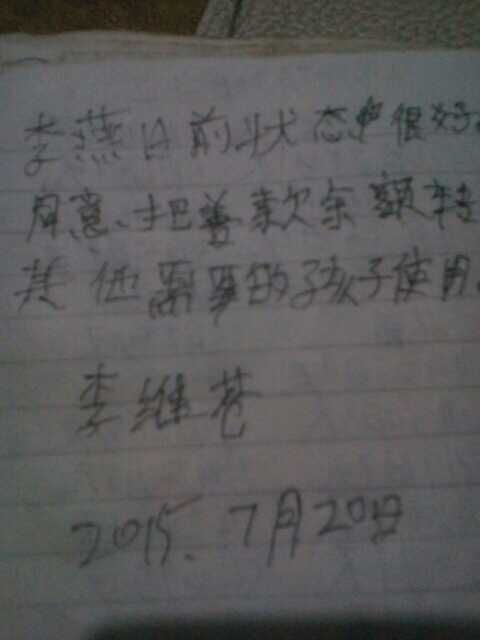 李燕目前状态很好。
同意、把善款余额转
其他需要的孩子使用。
李维苍
2015.7月20日